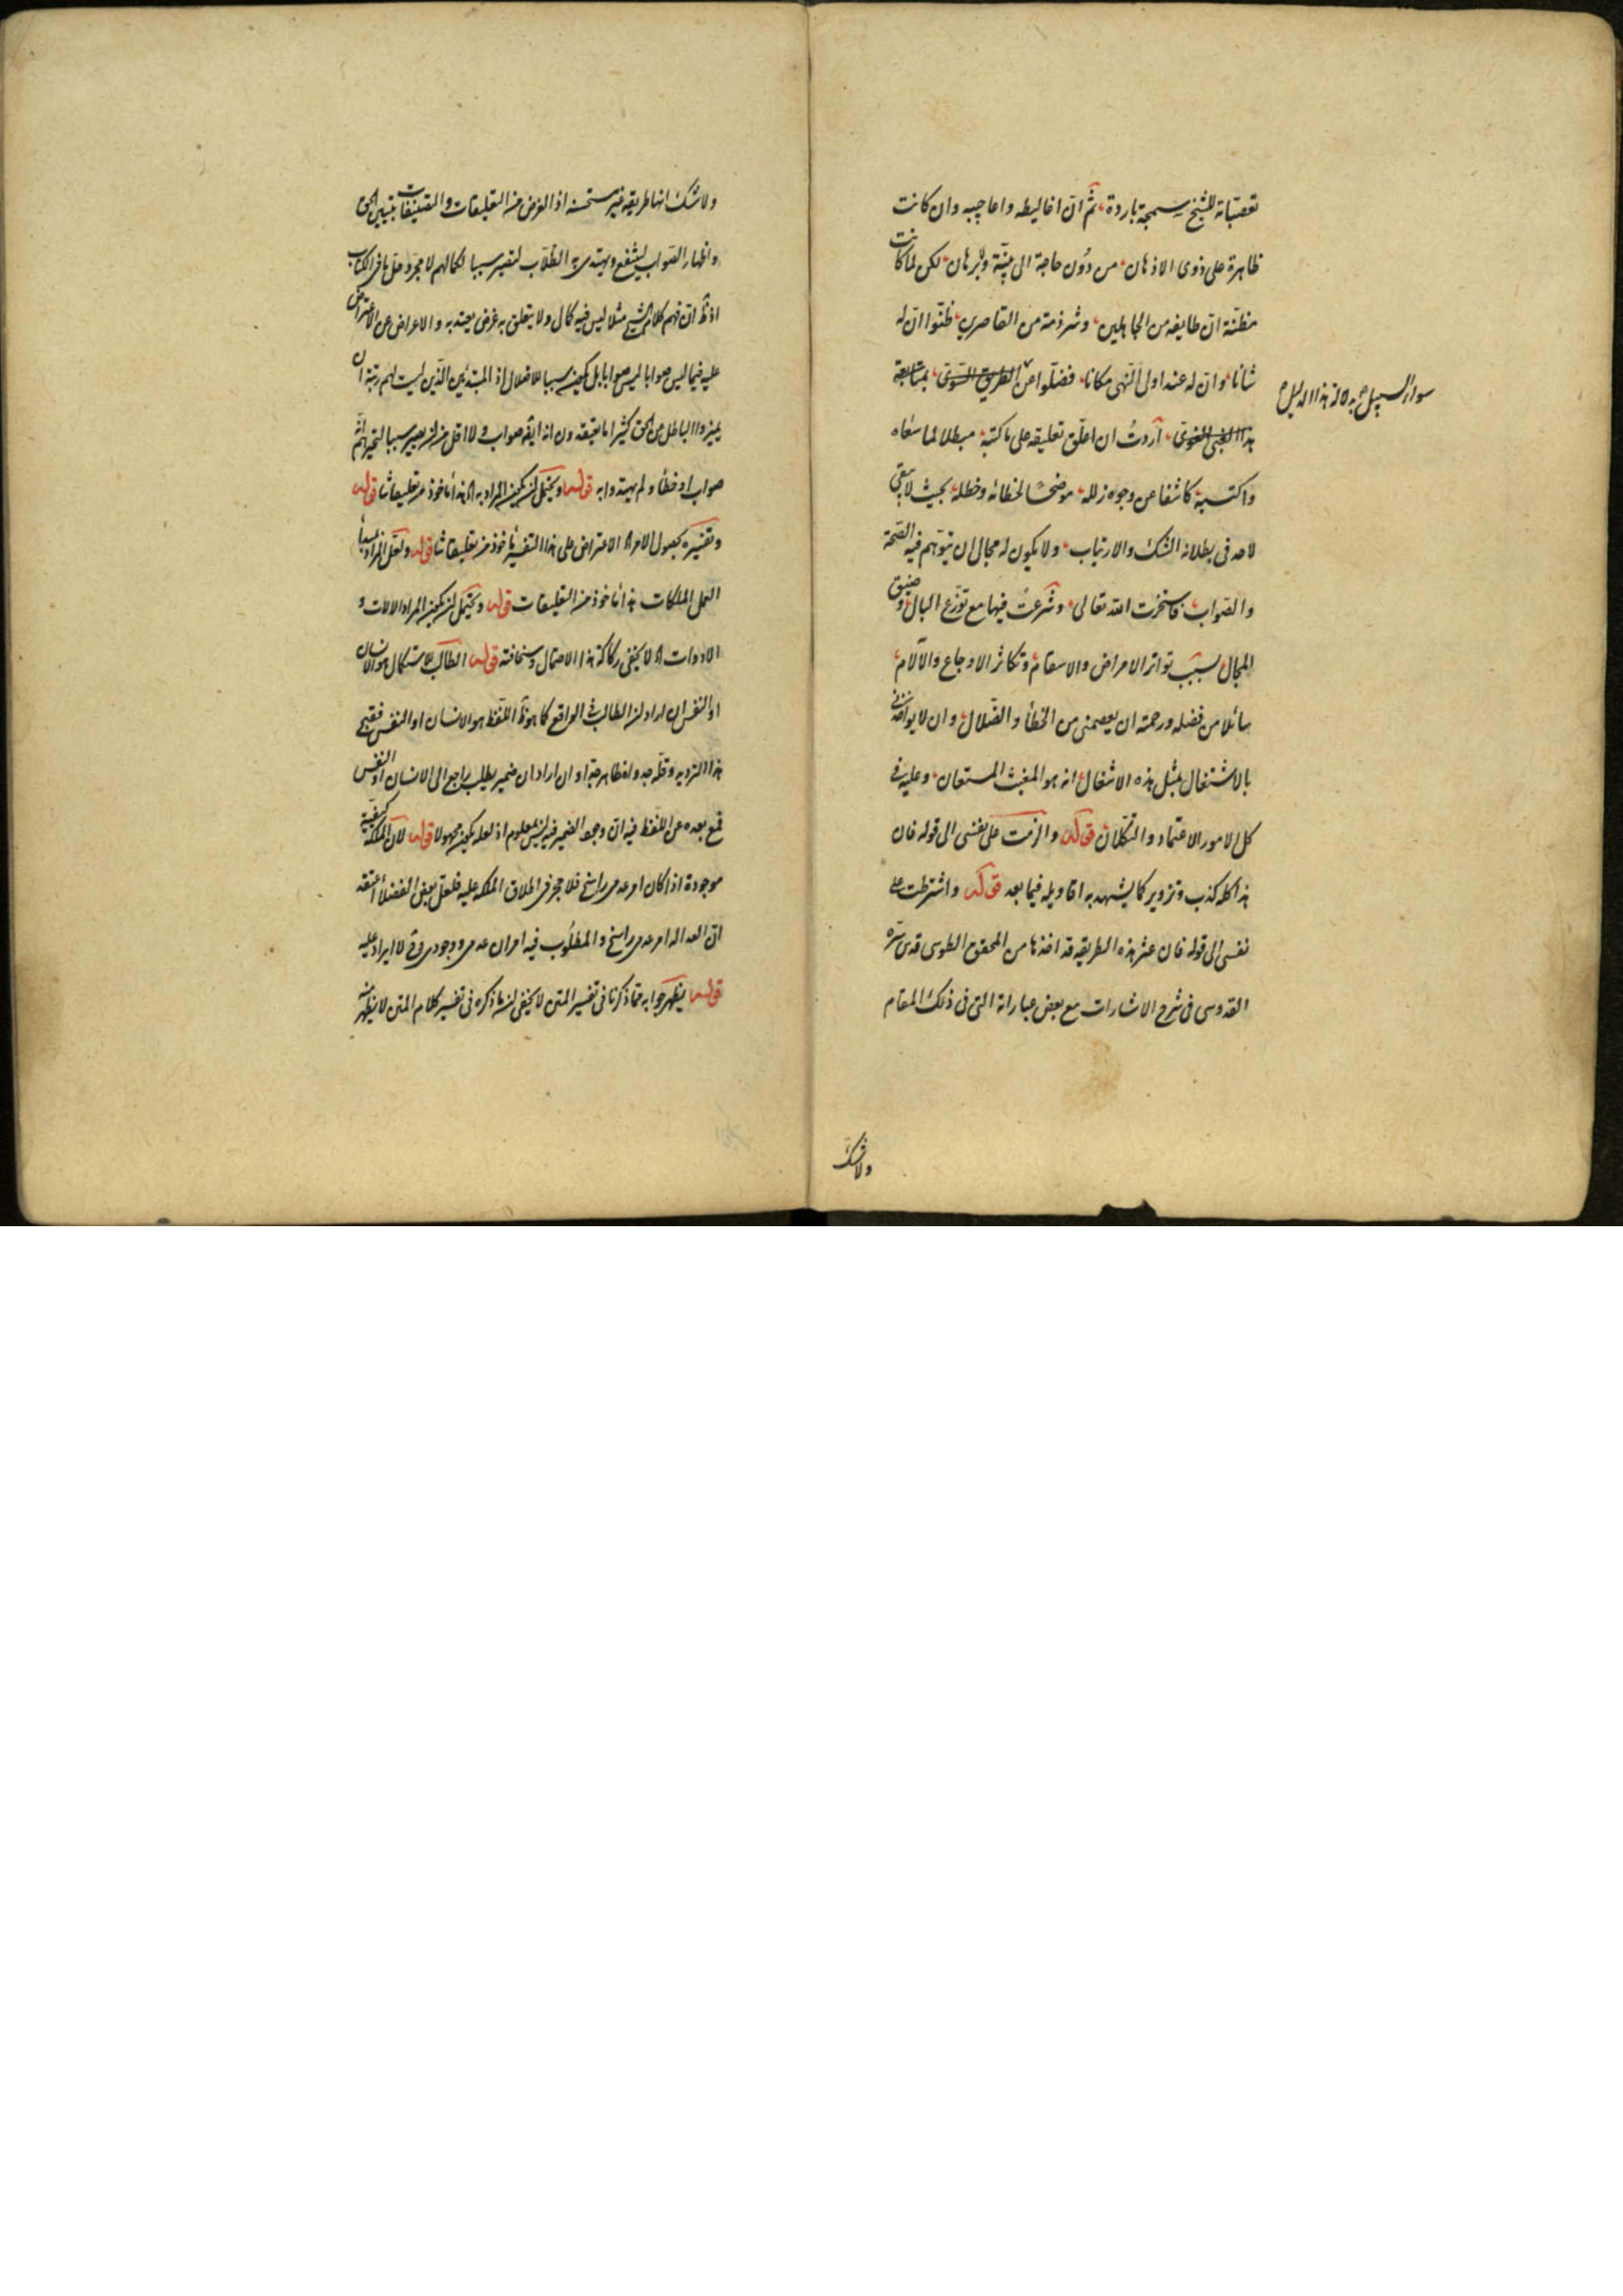 تعصّباته للشيخ سمجة باردة، ثمّ انّ اغاليطه واعاجيبه وان كانت
ظاهرة على ذوى الاذهان، من دُون حاجة الى بيّنة وبُرهان، لكن لما كانت
مظنّة انّ طايفه من الجاهلين، وشرذمة من القاصرين، ظنّوا انّ له
شانا، وانّ له عند اولى النّهى مكانا، فضلّوا عن الطريق السّوىّ، بمتابعة
سواء السبيل
هذا الغبىّ الغوىّ، أردتُ ان اعلّق تعليقه على ما كتبه، مبطلا لما سعاه
واكتسبه، كاشفا عن وجوه زلله، موضحًا لخطائه وخطله، بحيث لا يبقى
لاحد فى بطلانه الشكّ والارتياب، ولا يكون له مجال ان يتوّهم فيه الصّحّة
والصّواب، فاستخرت الله تعالى، وشرعتُ فيها مع توزّع البال، وضيق
المجال، بسبب تواتر الامراض والاسقام، وتكاثر الاوجاع والآلام،
سائلا من فضله ورحمته ان يعصمنى من الخطأ والضّلال، وان لا يواخذنى
بالاشتغال بمثل هذه الاشغال، انه هو المغيث المستعان، وعليه فى
كل الامور الاعتماد والتّكلان، قوله والزمت على نفسى الى قوله فان
هذا كله كذب وتزوير كما يشهد به اقاويله فيما بعد قوله واشترطت على
نفسى الى قوله فان عثر هذه الطريقه قد اخذها من المحقق الطوسى قدس سّره
القدوسى فى شرح الاشارات مع بعض عباراته التى فى ذلك المقام
ولا شك
ولا شك انها طريقه غير مستحسنه اذ الغرض من التعليقات والتصنيفات تبيين الحق
واظهار الصّواب لينتفع ويهتدى به الطلّاب لتصير سببا لكمالهم لا مجرد حلّ ما فى الكتاب
اذ فهم كلام الشيخ مثلا ليس فيه كمال ولا يتعلق به غرض يعتد به والاعراض عن الاعتراض
عليه فيما ليس صوابا ليس صوابا بل يكون سببا للاضلال اذ المبتدئين الّذين ليست لهم رتبة ان
يميزوا الباطل من الحق كثيرا ما يعتقدون انه صواب ولا اقل من ان يصير سببا لتحيرهم انّه
صواب او خطأ ولم يهتدوا به قوله ويحتمل ان يكون المراد به هذا ماخوذ من تعليقاتنا قوله
وتفسيره بحصول الامر الاعتراض على هذا التفسير ماخوذ من تعليقاتنا قوله ولعل المراد بمبدأ
العمل الملكات هذا ماخوذ من التعليقات قوله ويحتمل ان يكون المراد الالات و
الادوات لا يخفى ركاكة هذا الاحتمال وسخافته قوله الطالب للاستكمال هو الانسان
او النفس ان اراد ان الطالب فى الواقع كما هو اللّفظ هو الانسان او النفس فقبح
هذا الترديد وان اراد ان ضمير يطلب راجع الى الانسان او النفس
فمع بعده عن اللّفظ فيه ان وجود الضمير فيه ليس بمعلوم اذ لعله يكون مجهولا قوله لان الملكة كيفيّة
موجودة اذا كان امر عدمى راسخ فلا مجوز فى اطلاق الملكه عليه فلعل بعض الفضلاء اعتقد
انّ العداله امر عدمى راسخ والمطلُوب فيه امران عدمى ووجودى فلا ايراد عليه
قوله يظهر جوابه مما ذكرنا فى تفسير المتن لا يخفى ان ما ذكره فى تفسير كلام المتن لا يظهر منه